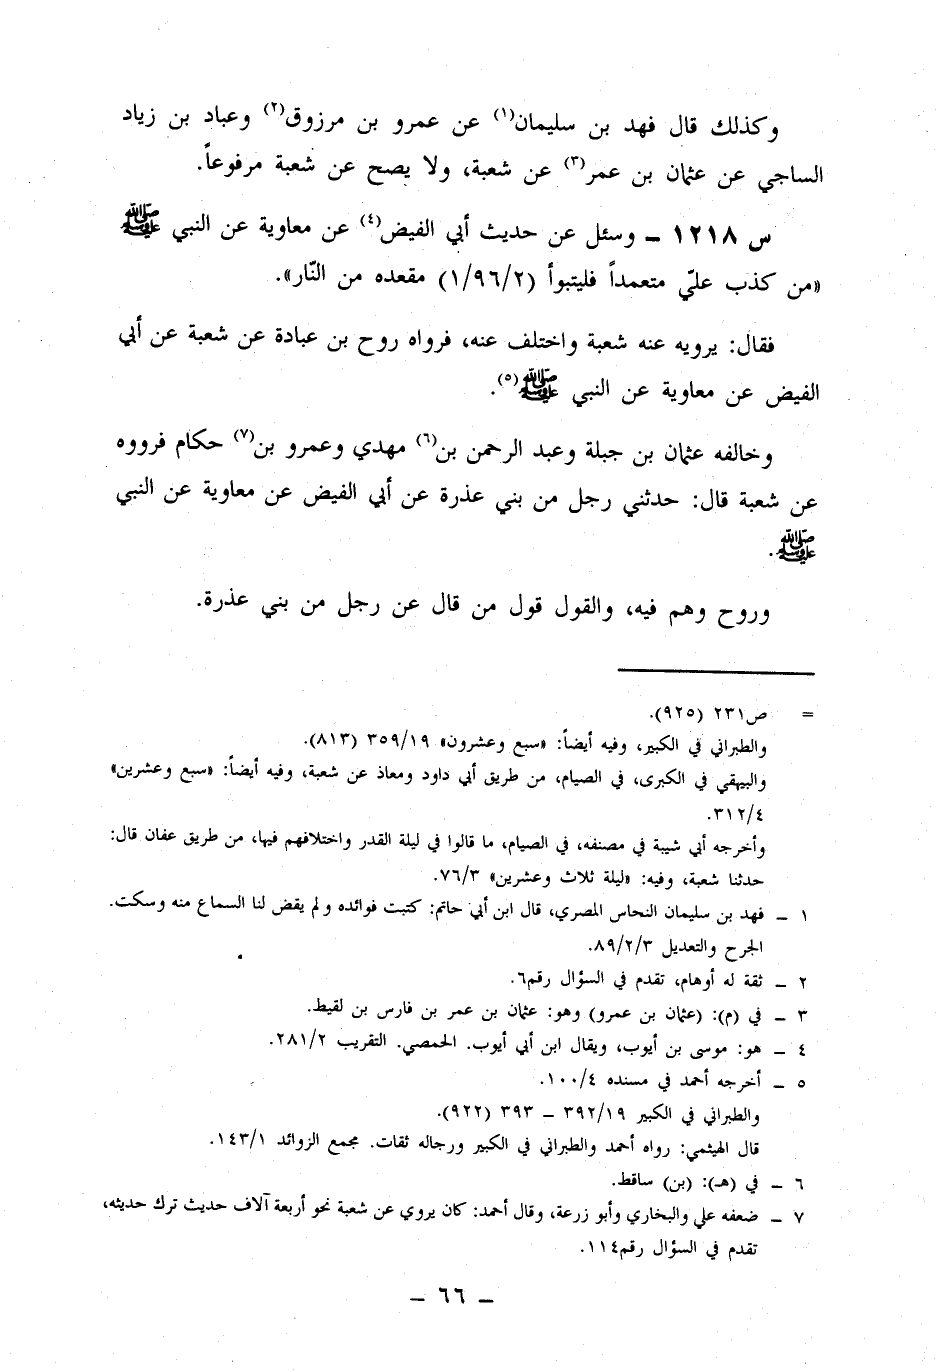 وكذلك قال فهد بن سليمان(١) عن عمرو بن مرزوق(٢) وعباد بن زياد
الساجي عن عثمان بن عمر(٣) عن شعبة، ولا يصح عن شعبة مرفوعاً.
س ١٢١٨ ـ وسئل عن حديث أبي الفيض(٤) عن معاوية عن النبي ﷺ
«من كذب عليّ متعمداً فليتبوأ (١/٩٦/٢) مقعده من النّار».
فقال: يرويه عنه شعبة واختلف عنه، فرواه روح بن عبادة عن شعبة عن أبي
الفيض عن معاوية عن النبي ﷺ(٥).
وخالفه عثمان بن جبلة وعبد الرحمن بن(٦) مهدي وعمرو بن(٧) حكام فرووه
عن شعبة قال: حدثني رجل من بني عذرة عن أبي الفيض عن معاوية عن النبي
ﷺ.
وروح وهم فيه، والقول قول من قال عن رجل من بني عذرة.
= ص٢٣١ (٩٢٥).
والطبراني في الكبير، وفيه أيضاً: «سبع وعشرون» ٣٥٩/١٩ (٨١٣).
والبيهقي في الكبرى، في الصيام، من طريق أبي داود ومعاذ عن شعبة، وفيه أيضاً: «سبع وعشرين»
٣١٢/٤.
وأخرجه أبي شيبة في مصنفه، في الصيام، ما قالوا في ليلة القدر واختلافهم فيها، من طريق عفان قال:
حدثنا شعبة، وفيه: «ليلة ثلاث وعشرين» ٧٦/٣.
١ ـ فهد بن سليمان النحاس المصري، قال ابن أبي حاتم: كتبت فوائده ولم يقض لنا السماع منه وسكت.
الجرح والتعديل ٨٩/٢/٣.
٢ ـ ثقة له أوهام، تقدم في السؤال رقم٦.
٣ ـ في (م): (عثمان بن عمرو) وهو: عثمان بن عمر بن فارس بن لقيط.
٤ ـ هو: موسى بن أيوب، ويقال ابن أبي أيوب. الحمصي. التقريب ٢٨١/٢.
٥ ـ أخرجه أحمد في مسنده ١٠٠/٤.
والطبراني في الكبير ٣٩٢/١٩ ـ ٣٩٣ (٩٢٢).
قال الهيثمي: رواه أحمد والطبراني في الكبير ورجاله ثقات. مجمع الزوائد ١٤٣/١.
٦ ـ في (هـ): (بن) ساقط.
٧ ـ ضعفه علي والبخاري وأبو زرعة، وقال أحمد: كان يروي عن شعبة نحو أربعة آلاف حديث ترك حديثه،
تقدم في السؤال رقم١١٤.
ـ ٦٦ ـ